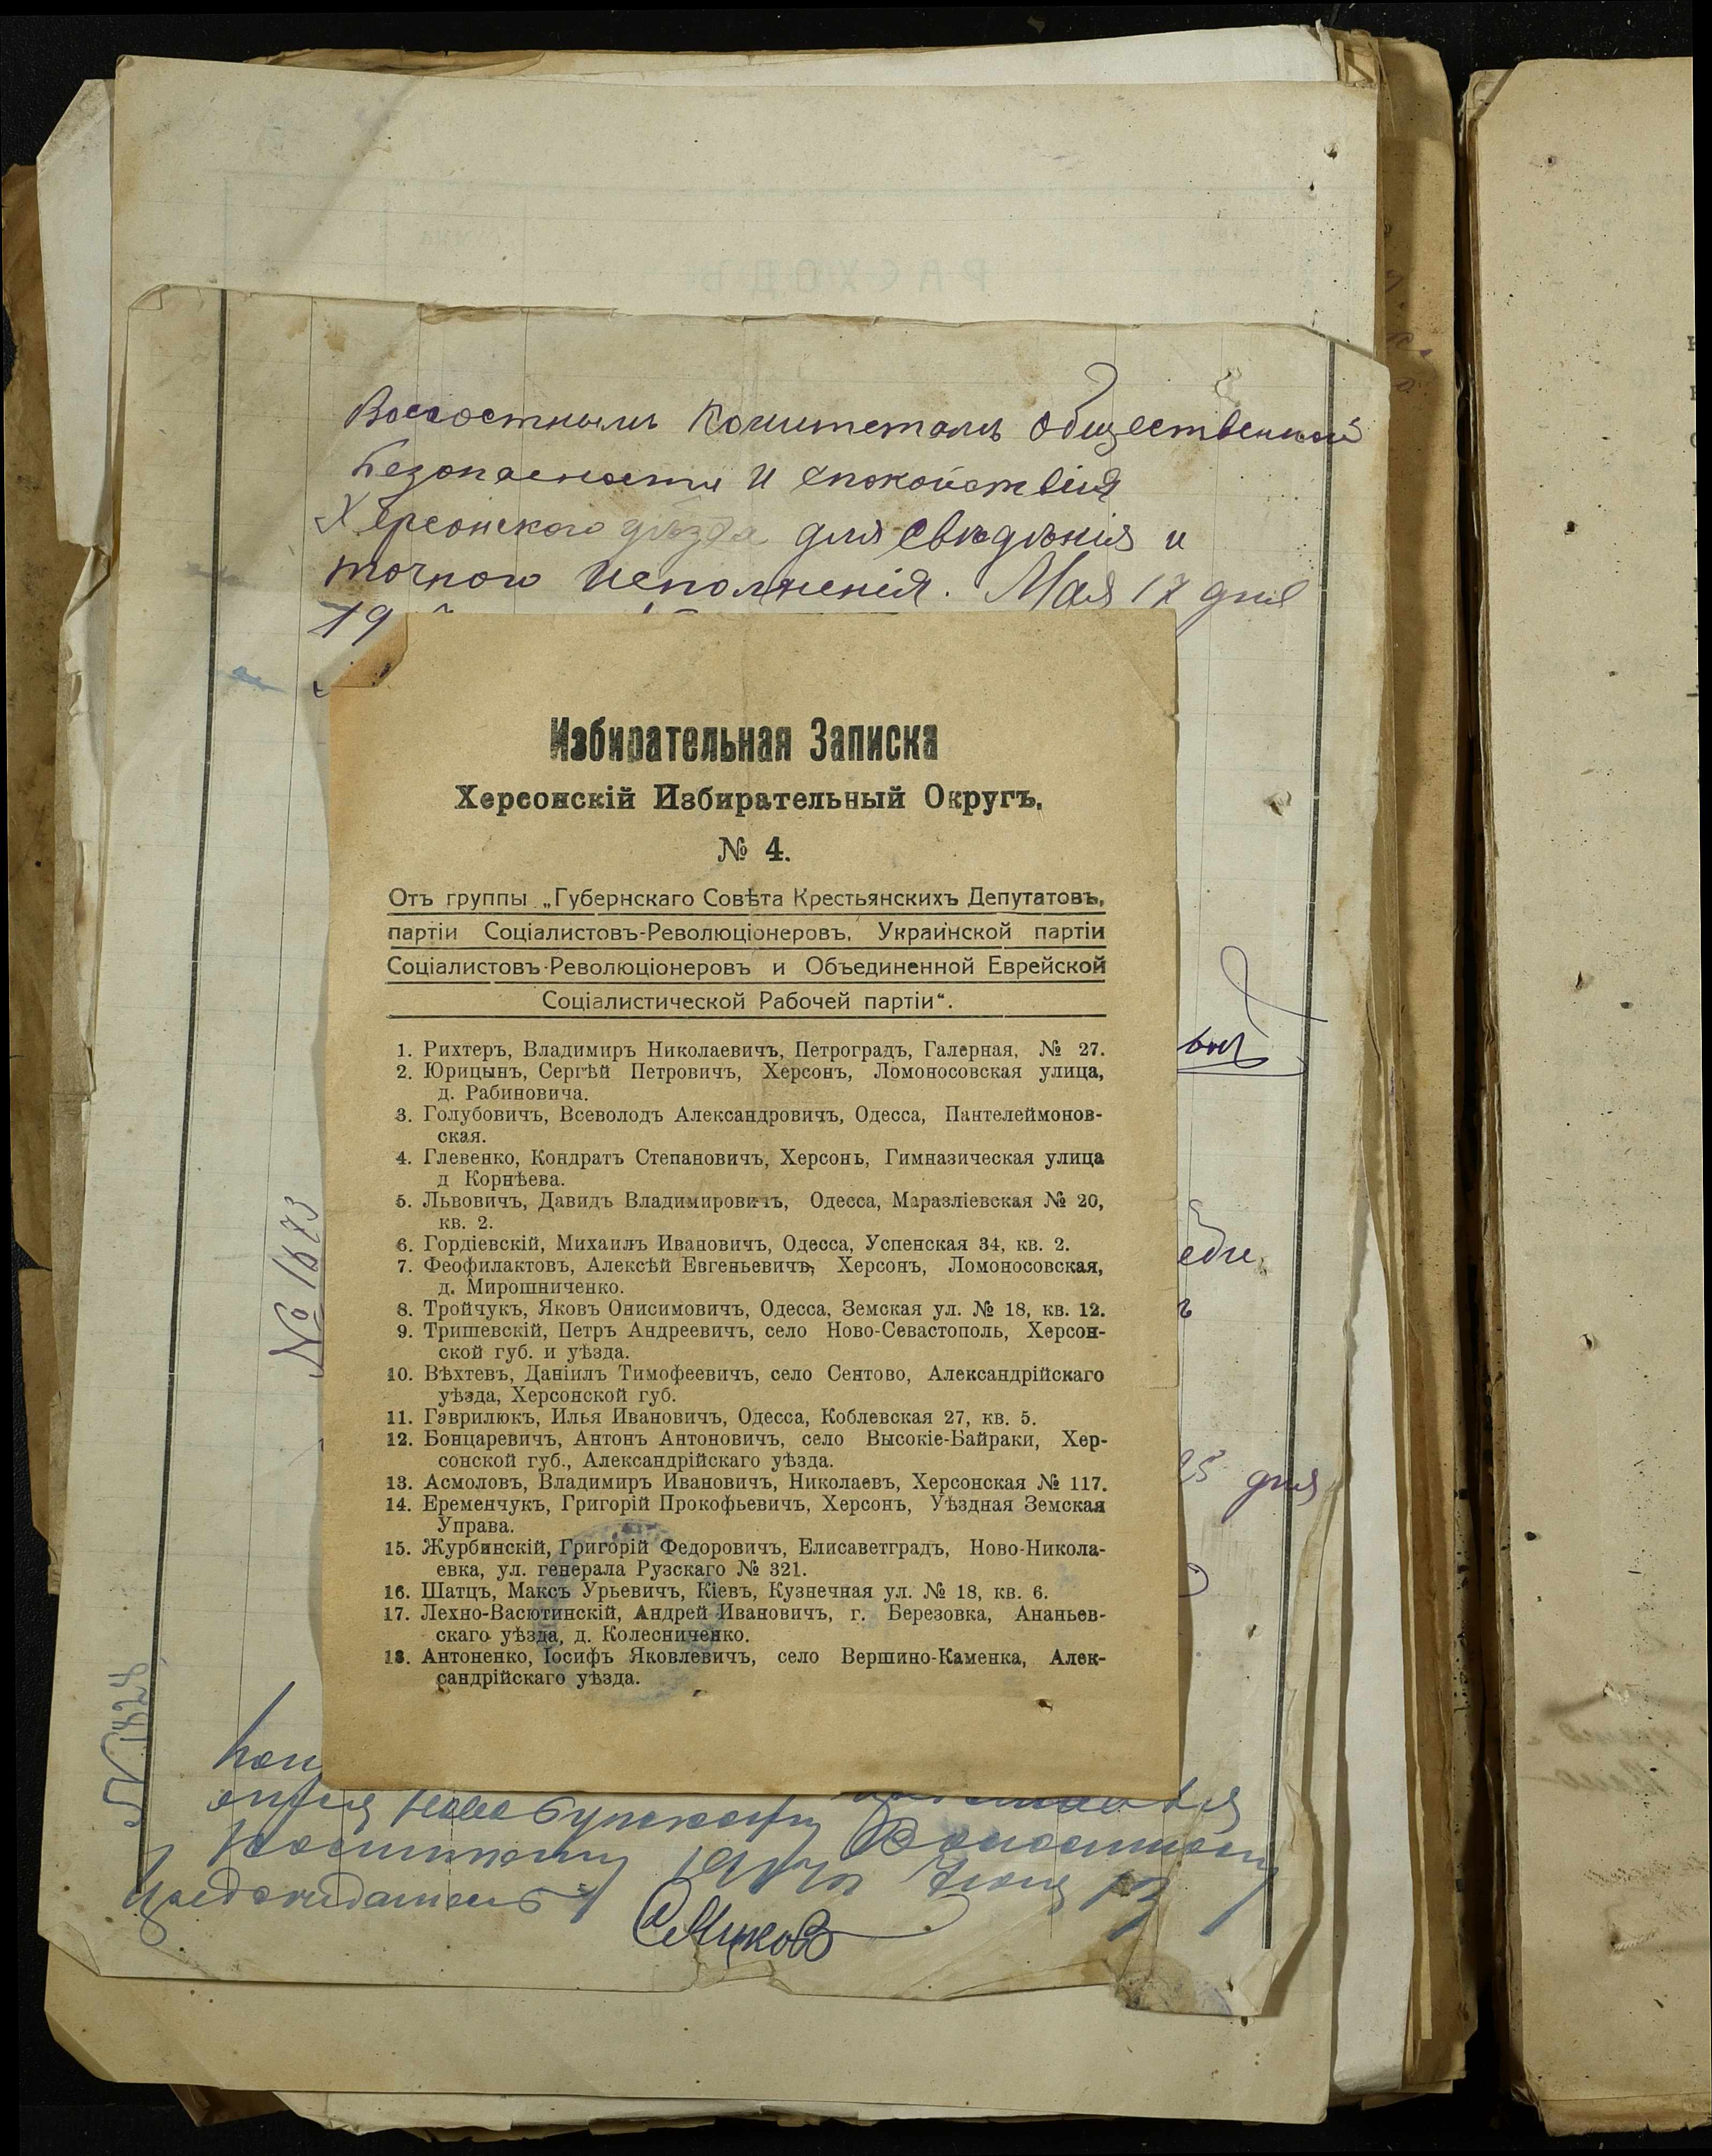 РАСХОДЪ
Волостнымъ Комитетамъ Общественной
Безопасности и спокойствія
Херсонского уѣзда для свѣдѣнія и
точного исполненія. Мая 17 дня
19
Избирательная Записка
Херсонскій Избирательный Округъ.
№ 4.
Отъ группы „Губернскаго Совѣта Крестьянскихъ Депутатовъ,
партіи Соціалистовъ-Революціонеровъ, Украинской партіи
Соціалистовъ-Революціонеровъ и Объединенной Еврейской
Соціалистической Рабочей партіи“.
1. Рихтеръ, Владимиръ Николаевичъ, Петроградъ, Галерная, № 27.
2. Юрицынъ, Сергѣй Петровичъ, Херсонъ, Ломоносовская улица,
д. Рабиновича.
3. Голубовичъ, Всеволодъ Александровичъ, Одесса, Пантелеймонов-
ская.
4. Глевенко, Кондратъ Степановичъ, Херсонъ, Гимназическая улица
д Корнѣева.
5. Львовичъ, Давидъ Владимировичъ, Одесса, Маразліевская № 20,
кв. 2.
6. Гордіевскій, Михаилъ Ивановичъ, Одесса, Успенская 34, кв. 2.
7. Феофилактовъ, Алексѣй Евгеньевичъ, Херсонъ, Ломоносовская,
д. Мирошниченко.
8. Тройчукъ, Яковъ Онисимовичъ, Одесса, Земская ул. № 18, кв. 12.
9. Тришевскій, Петръ Андреевичъ, село Ново-Севастополь, Херсон-
ской губ. и уѣзда.
10. Вѣхтевъ, Даніилъ Тимофеевичъ, село Сентово, Александрійскаго
уѣзда, Херсонской губ.
11. Гаврилюкъ, Илья Ивановичъ, Одесса, Коблевская 27, кв. 5.
12. Бонцаревичъ, Антонъ Антоновичъ, село Высокіе-Байраки, Хер-
сонской губ., Александрійскаго уѣзда.
13. Асмоловъ, Владимиръ Ивановичъ, Николаевъ, Херсонская № 117.
14. Еременчукъ, Григорій Прокофьевичъ, Херсонъ, Уѣздная Земская
Управа.
15. Журбинскій, Григорій Федоровичъ, Елисаветградъ, Ново-Никола-
евка, ул. генерала Рузскаго № 321.
16. Шатцъ, Максъ Урьевичъ, Кіевъ, Кузнечная ул. № 18, кв. 6.
17. Лехно-Васютинскій, Андрей Ивановичъ, г. Березовка, Ананьев-
скаго уѣзда, д. Колесниченко.
18. Антоненко, Іосифъ Яковлевичъ, село Вершино-Каменка, Алек-
сандрійскаго уѣзда.
№ 1673
25 дня
№ 1324
Ново Бугскому Волостному
Комитету 1917 г. Іюня 13
Председатель